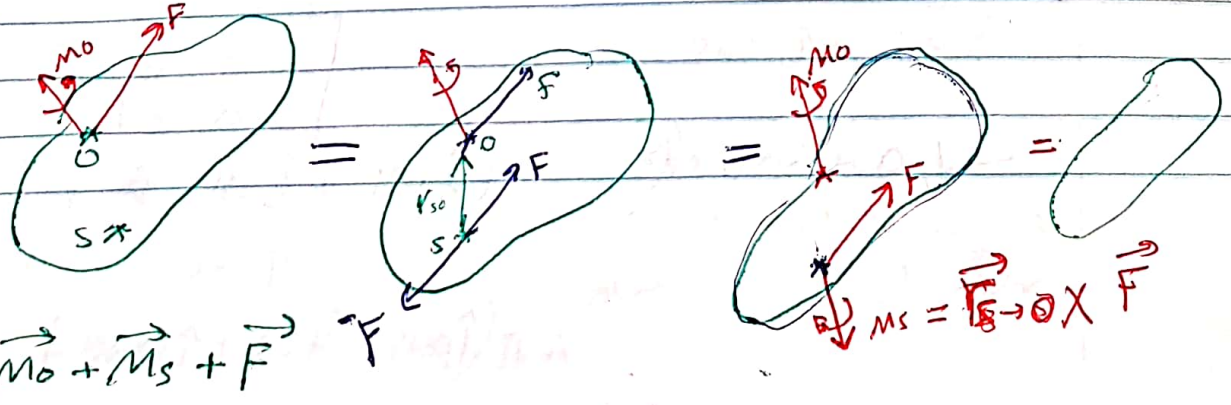 F
Mo
O
S
=
f
O
F
r_so
S
-F
=
Mo
F
Ms = r_S→O × F
=
Mo + Ms + F